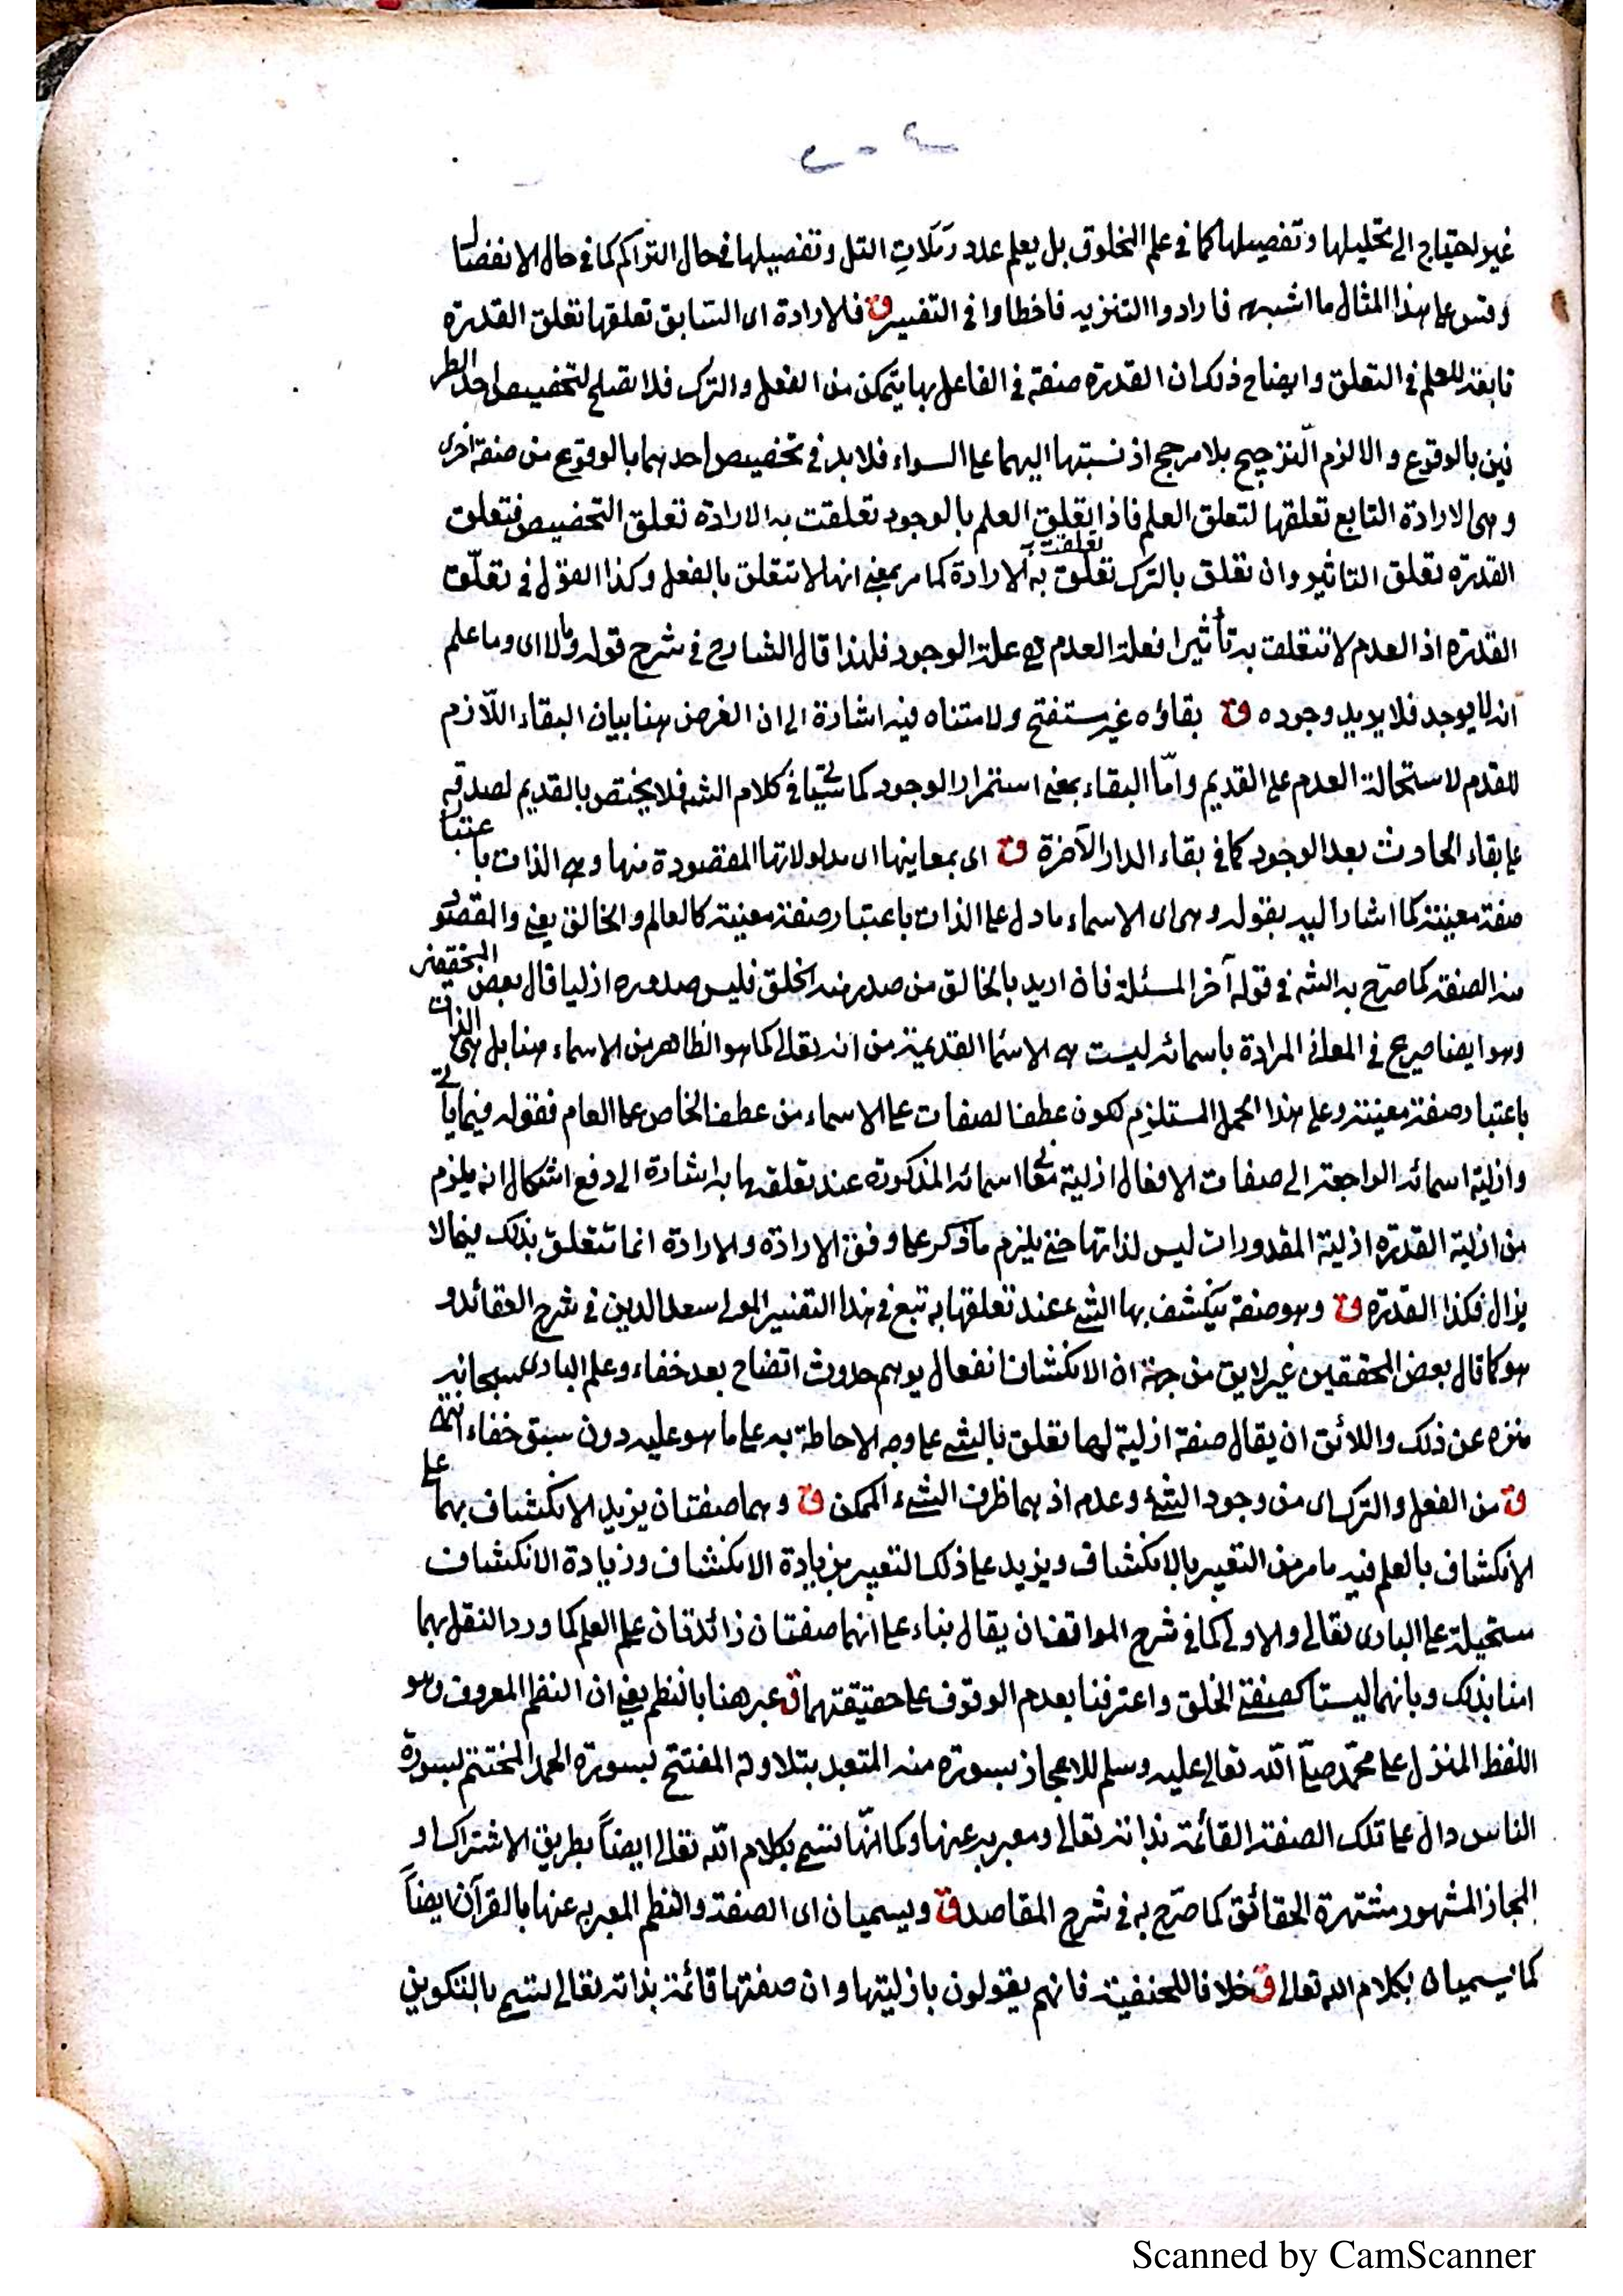 غير احتياج الى تحليلها وتفصيلها كما في علم المخلوق بل يعلم عدد رملات التل وتفصيلها في حال التراكم كما في حال الانفصال
وقس على هذا المثال ما اشبهه فارادوا التنزيه فاخطاوا في التفسير ق فالارادة اى السابق تعلقها تعلق القدرة
تابعة للعلم في التعلق وايضاح ذلك ان القدرة صفة في الفاعل بها يتمكن من الفعل والترك فلا تصلح لتخصيص احد الطر
فين بالوقوع والا لزم الترجيح بلا مرجح اذ نسبتها اليهما على السواء فلا بد في تخصيص احدهما بالوقوع من صفة اخرى
وهى الارادة التابع تعلقها لتعلق العلم فاذا تعلق العلم بالوجود تعلقت به الارادة تعلق التخصيص فتعلق
القدرة تعلق التاثير وان تعلق بالترك تعلقت به الارادة كما مر بمعنى انها لا تتعلق بالفعل وكذا القول في تعلق
القدرة اذ العدم لا تتعلق به تأثيرا فعلة العدم عدم علة الوجود فلهذا قال الشارح في شرح قوله ومالا اى وما علم
انه لا يوجد فلا يريد وجوده ق بقاؤه غير مستفتح ولا متناه فيه اشارة الى ان الغرض هنا بيان البقاء اللازم
للقدم لاستحالة العدم على القديم وامّا البقاء بمعنى استمرار الوجود كما سيأتي في كلام الشه فلا يختص بالقديم لصدقه
على بقاء الحادث بعد الوجود كما في بقاء الدار الآخرة ق اى بمعاينها اى مدلولاتها المقصودة منها وهى الذات باعتبا
صفة معينة كما اشار اليه بقوله وهى اى الاسماء ما دل على الذات باعتبار صفة معينة كالعالم والخالق يعنى والمقصو
منه الصفة كما صرّح به الشه في قوله آخر المسئلة فان اريد بالخالق من صدر منه الخلق فليس صدوره ازليا قال بعض المحققين
وهو ايضا صريح في المعانى المرادة باسمائه ليست هى الاسما القديمة من انه تعالى كما هو الظاهر من الاسماء هنا بل هى الذات
باعتبار صفة معينة وعلى هذا المحمل المستلزم لكون عطف الصفات على الاسماء من عطف الخاص على العام فقوله فيما ياتى
وازلية اسمائه الراجعة الى صفات الافعال ازلية اسمائه المذكورة عند تعلقها به اشارة الى دفع اشكال انه يلزم
من ازلية القدرة ازلية المقدورات ليس لذاتها حتى يلزم ما ذكر على وفق الارادة والارادة انما تتعلق بذلك فيما لا
يزال فكذا القدرة ق وهو صفة ينكشف بها الشئ عند تعلقها به تبع في هذا التفسير المولى سعد الدين في شرح العقائد و
هو كما قال بعض المحققين غير لايق من جهة ان الانكشاف انفعال يوهم حدوث اتضاح بعد خفاء وعلم البارى سبحانه
منزه عن ذلك واللائق ان يقال صفة ازلية لها تعلق بالشئ على وجه الاحاطة به على ما هو عليه دون سبق خفاء انتهى
ق من الفعل والترك اى من وجود الشئ وعدم اذ هما ظرف الشئ الممكن ق وهما صفتان يزيد الانكشاف بهما على
الانكشاف بالعلم فيه ما مر من التعبير بالانكشاف ويزيد على ذلك التعبير بزيادة الانكشاف وزيادة الانكشاف
ستحيلة على البارى تعالى والاولى كما في شرح المواقف ان يقال بناء على انهما صفتان زائدتان على العلم كما ورد النقل بهما
امنا بذلك وبانهما ليستا كصفتى الخلق واعترفنا بعدم الوقوف على حقيقتهما ق عبر هنا بالنظم يعنى ان النظم المعروف وهو
اللفظ المنزل على محمّد صلّى الله تعالى عليه وسلم للاعجاز بسورة منه المتعبد بتلاوته المفتتح بسورة الحمد المختتم بسورة
الناس دال على تلك الصفة القائمة بذاته تعالى ومعبر به عنها وكما انّها تسمى بكلام الله تعالى ايضاً بطريق الاشتراك او
المجاز المشهور مشتهرة الحقائق كما صرّح به في شرح المقاصد ق ويسميان اى الصفة والنظم المعبر به عنها بالقرآن ايضاً
كما يسميان بكلام الله تعالى ق خلافا للحنفية فانهم يقولون بازليتها وان صفتها قائمة بذاته تعالى تسمى بالتكوين
Scanned by CamScanner